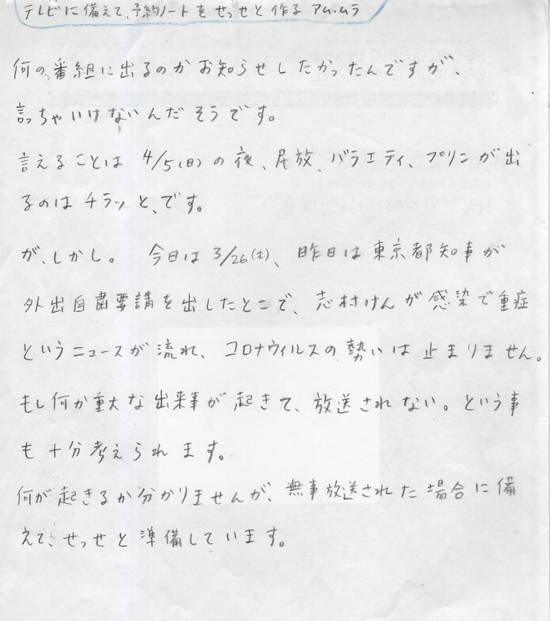 テレビに備えて、予約ノートをせっせと作る アム・ムラ
何の番組に出るのかお知らせしたかったんですが、
言っちゃいけないんだそうです。
言えることは 4/5(日)の夜、民放、バラエティ、プリンが出
るのはチラッと、です。
が、しかし。 今日は3/26(土)、昨日は東京都知事が
外出自粛要請を出したとこで、志村けんが感染で重症
というニュースが流れ、コロナウィルスの勢いは止まりません。
もし何か重大な出来事が起きて、放送されない。という事
も十分考えられます。
何が起きるか分かりませんが、無事放送された場合に備
えて、せっせと準備しています。